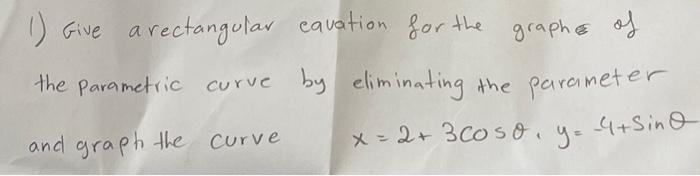 1) Give a rectangular equation for the graph of
the parametric curve by eliminating the parameter
and graph the curve x = 2 + 3cosθ, y = -4 + Sinθ